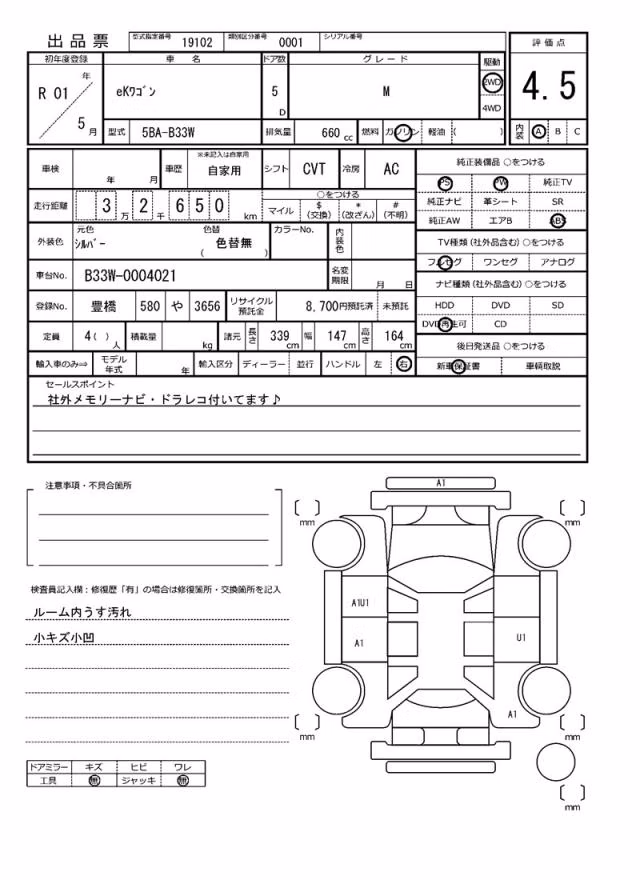 出品票
型式指定番号 19102 類別区分番号 0001 シリアル番号
評価点
4.5
内装 A B C
初年度登録 車名 ドア数 グレード 駆動
R 01 年 5 月
eKワゴン 5 D M 2WD 4WD
型式 5BA-B33W 排気量 660 cc 燃料 ガソリン 軽油 ( )
車検 年 月 車歴 ※未記入は自家用 自家用 シフト CVT 冷房 AC
走行距離 3 万 2 千 6 5 0 km
○をつける
マイル $ (交換) * (改ざん) # (不明)
外装色 元色 シルバー 色替 ( 色替無 ) カラーNo. 内装色
車台No. B33W-0004021 名変期限 月 日
登録No. 豊橋 580 や 3656 リサイクル預託金 8,700円預託済 未預託
定員 4( ) 人 積載量 kg 諸元 長さ 339 cm 幅 147 cm 高さ 164 cm
輸入車のみ⇒ モデル年式 年 輸入区分 ディーラー 並行 ハンドル 左 右
純正装備品 ○をつける
PS PW 純正TV
純正ナビ 革シート SR
純正AW エアB ABS
TV種類 (社外品含む) ○をつける
フルセグ ワンセグ アナログ
ナビ種類 (社外品含む) ○をつける
HDD DVD SD
DVD再生可 CD
後日発送品 ○をつける
新車保証書 車輌取説
セールスポイント
社外メモリーナビ・ドラレコ付いてます♪
注意事項・不具合箇所
検査員記入欄：修復歴「有」の場合は修復箇所・交換箇所を記入
ルーム内うす汚れ
小キズ小凹
ドアミラー キズ ヒビ ワレ
工具 無 ジャッキ 無
A1
mm mm
A1U1
A1 U1
A1
mm mm
mm